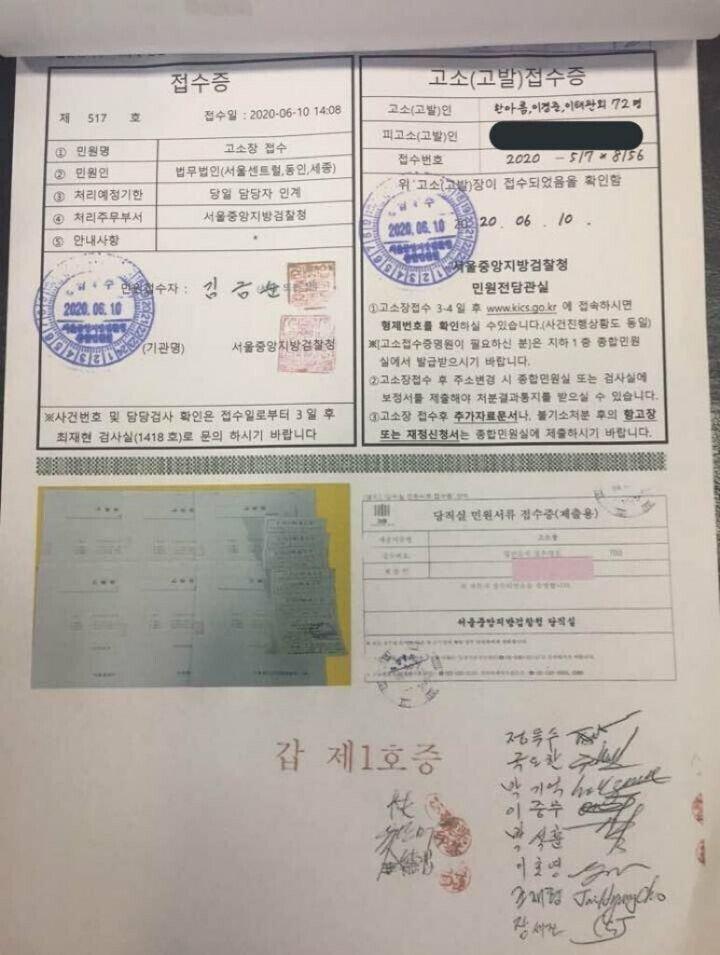 접수증
제 517 호
접수일 : 2020-06-10 14:08
① 민원명 고소장 접수
② 민원인 법무법인(서울센트럴,동인,세종)
③ 처리예정기한 당일 담당자 인계
④ 처리주무부서 서울중앙지방검찰청
⑤ 안내사항 *
민원접수자 : 김
2020.06.10
(기관명) 서울중앙지방검찰청
※사건번호 및 담당검사 확인은 접수일로부터 3 일 후
최재현 검사실(1418 호)로 문의 하시기 바랍니다
고소(고발)접수증
고소(고발)인 한아름,이경준,이태판외 72명
피고소(고발)인
접수번호 2020 - 517 * 8156
위 고소(고발)장이 접수되었음을 확인함
접수
2020.06.10
2020. 06. 10.
서울중앙지방검찰청
민원전담관실
①고소장접수 3-4 일 후 www.kics.go.kr 에 접속하시면
형제번호를 확인하실 수있습니다.(사건진행상황도 동일)
※(고소접수증명원이 필요하신 분)은 지하 1 층 종합민원
실에서 발급받으시기 바랍니다.
②고소장접수 후 주소변경 시 종합민원실 또는 검사실에
보정서를 제출해야 처분결과통지를 받으실 수 있습니다.
③고소장 접수후 추가자료문서나, 불기소처분 후의 항고장
또는 재정신청서는 종합민원실에 제출하시기 바랍니다.
당직실 민원서류 접수증(제출용)
고소장
서울중앙지방검찰청 당직실
갑 제1호증
정목수
국요한
박기억
이중무
박석훈
이호영
조재형 JaiHyungCho
장세진